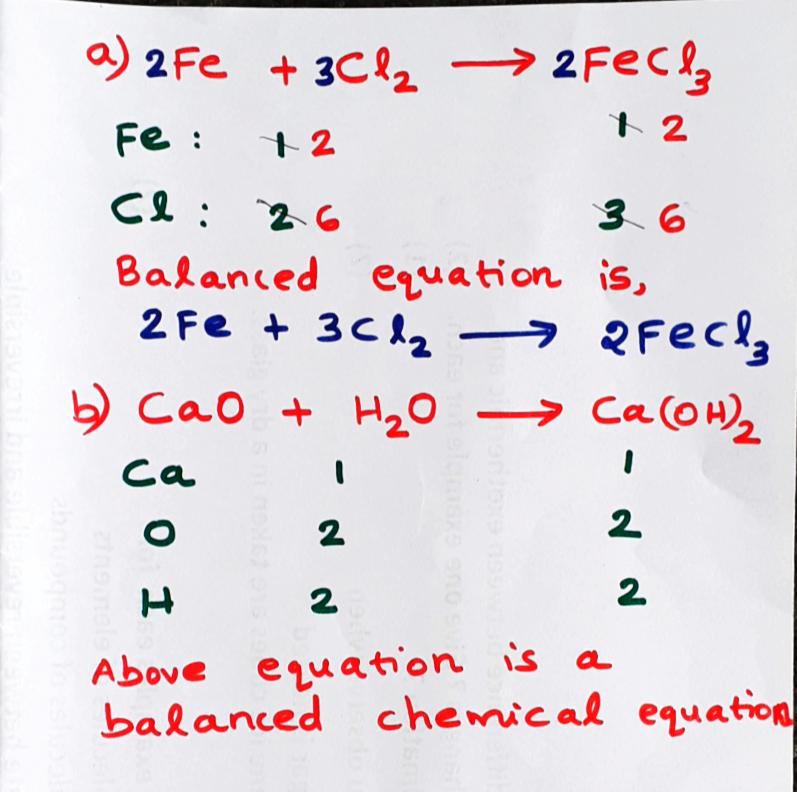 a) 2Fe + 3Cl₂ → 2FeCl₃
Fe : 1 2 1 2
Cl : 2 6 3 6
Balanced equation is,
2Fe + 3Cl₂ → 2FeCl₃
b) CaO + H₂O → Ca(OH)₂
Ca 1 1
O 2 2
H 2 2
Above equation is a
balanced chemical equation